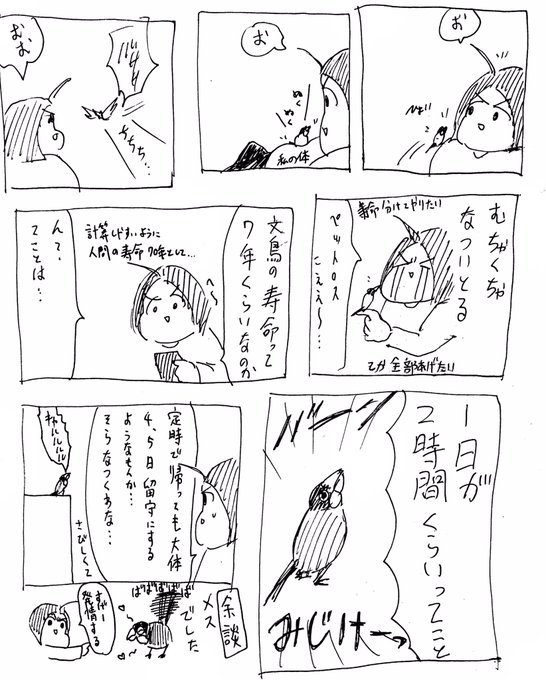 お
お
ぬく
ぬく
私の体
お、お
ちちち…
むちゃくちゃ
なついとる
寿命分けてやりたい
ペットロス
こええ〜…
てか全部あげたい
文鳥の寿命って
7年くらいなのか
へ〜
計算しやすいように
人間の寿命70年として…
んで、
てことは…
1日が
2時間くらいってこと
ガーン
みじけーっ
定時で帰っても大体
4、5日留守にする
ようなもんか…
そらなつくわな…
さびしくて
キャルルルル
余談
メス
でした
ばばばばば
すげー
発情する